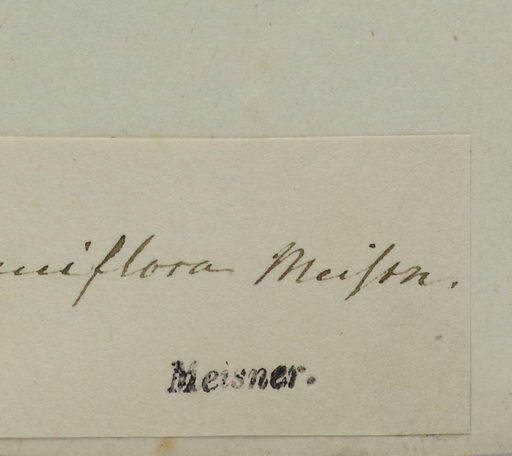 uiflora Meissn.
Meisner.